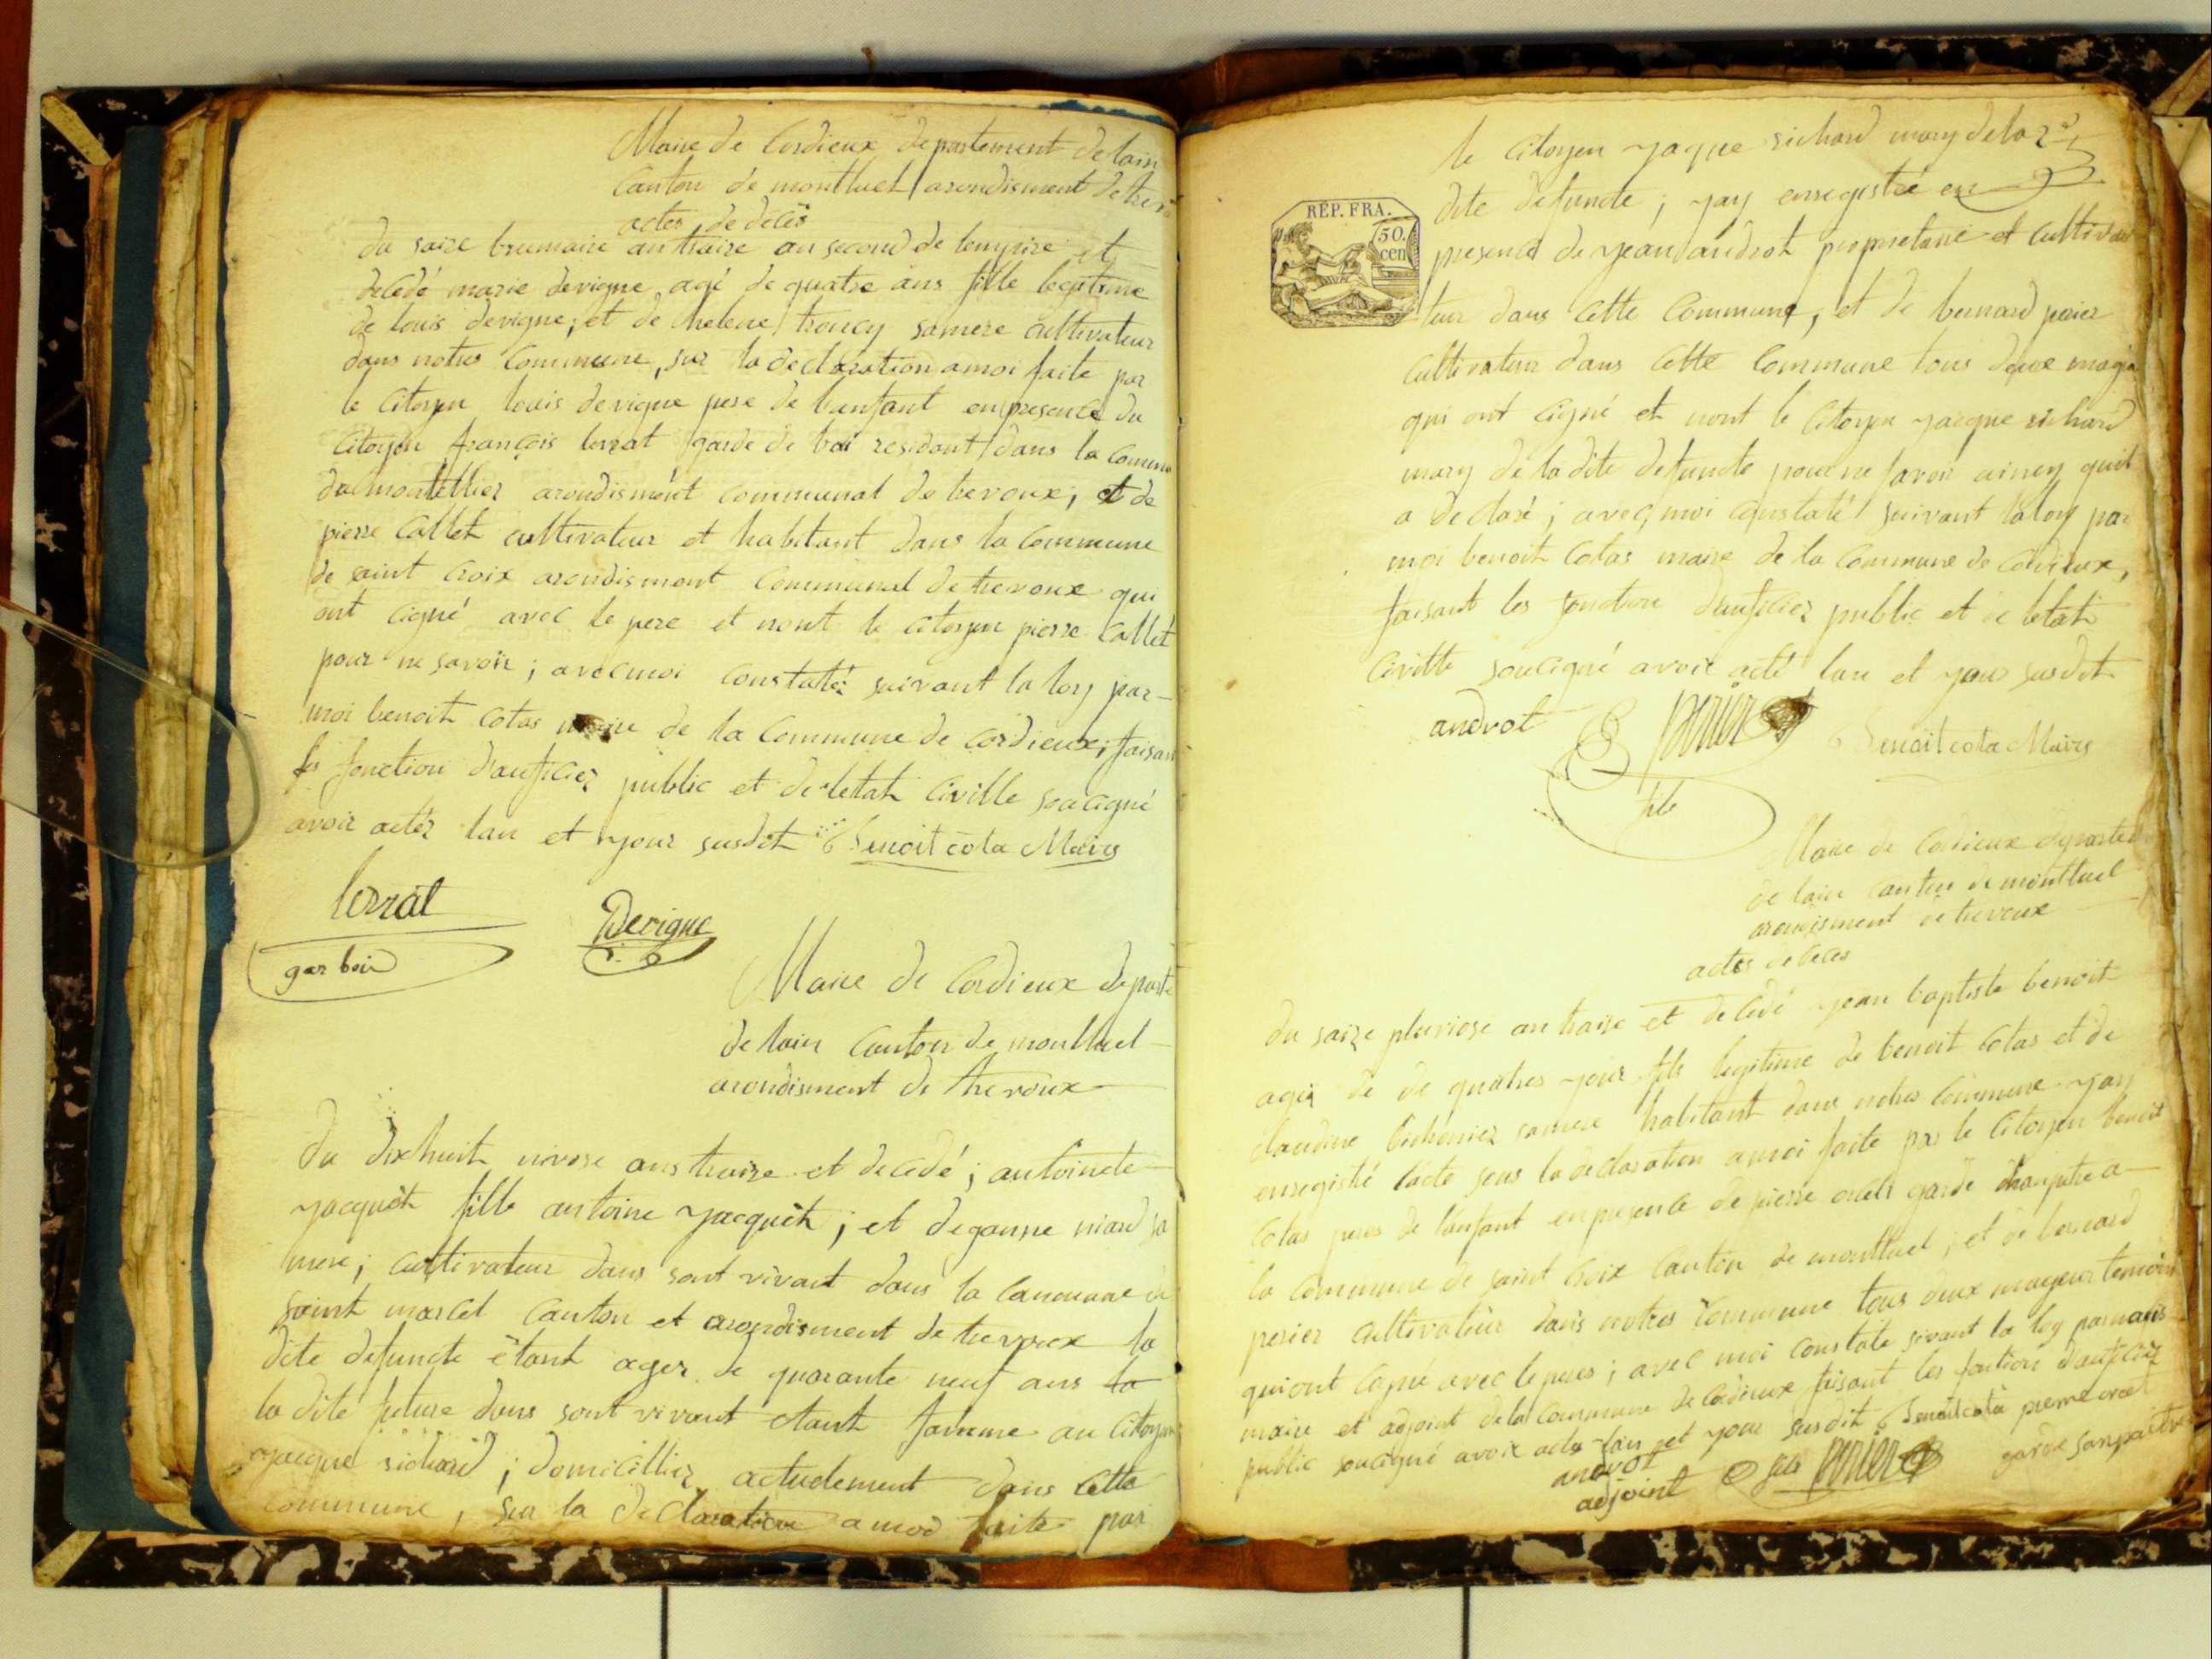 Maire de Cordieux departement de lain
Canton de montluel arondisment de trev
actes de déces
du saize brumaire an traize an second de lempire et
décédé marie devigne agé de quatre ans fille legitime
de louis devigne, et de helene troncy samere cultivateur
dans notres Commune, sur la declaration amoi faite par
le Citoyen louis devigne pere de lanfant enpresence du
Citoyen françois lorrat garde de boi residant dans la Commu
du montellier arondisment communal de trevoux, et de
pierre Collet cultivateur et habitant dans la commune
de saint Croix arondisment Communal de trevoux qui
ont cigné avec le pere et nont le citoyen pierre Collet
pour ne savoir; avecmoi Constatér suivant la loy par
moi benoit Cotas maire de la Commune de Cordieux, faisan
les fonction d'auficiez public et de letat Civille soucigné
avoir actér lan et your susdit Benoit cota Maire
lorrat
gar boi
Devigne
Maire de Cordieux departe
de lain Canton de montluel
arondisment de trevoux
du dixhuit nivose ans traize et decedé; antoinete
yacquet fille antoine yacquet; et deganne niard sa
mere; cultivateur dans sont vivant dans la Commune de
saint marcel Canton et arondisment de trevoux la
dite defuncte étant ager de quarante neuf ans la
la dite future dans sont vivant étant famme au Citoyen
yacque richard; domicillier actuelement dans cette
commune, sur la declaration a moi faite par
le Citoyen yaque richard mary de la
dite defuncte; yay enregistré en
REP. FRA.
50.
cen
presence de yean androt propriétaire et cultiva
teur dans Cette Commune, et de bernard perier
Cultivateur dans Cette Commune tous deux mageu
qui ont cigné et nont le Citoyen yacque richard
mary de la dite defuncte pour ne savoir ainsy quil
a declaré; avec moi Constaté suivant la loy par
moi benoit Cotas maire de la Commune de Cordieux,
faisant les fonction d'auficiez public et de letat
Civille soucigné avoir acté lan et your susdit
androt perier Benoit cota Maire
fils
Maire de Cordieux departe
de lain Canton de montluel
arondisment de trevoux
actes de déces
du saize pluviose an traize et decédé yean baptiste benoit
agér de de quatres your fils legitime de benoit Cotas et de
claudine samere habitant dans notres Commune yay
enregistré lacte sous la declaration amoi faite par le Citoyen benoit
Cotas peres de lanfant enpresence de pierre garde champetre a
la Commune de saint Croix Canton de montluel, et de bernard
perier Cultivateur dans notres Commune tous deux mageur temoin
quiont cigné avec le peres; avec moi Constaté sivant la loy
maire et adjoint de la Commune de Cordieux faisant les fontion dauficiez
public soucigné avoir acte lan et your susdit Benoit cota pierre
androt fils perier garde sanpaitre
adjoint